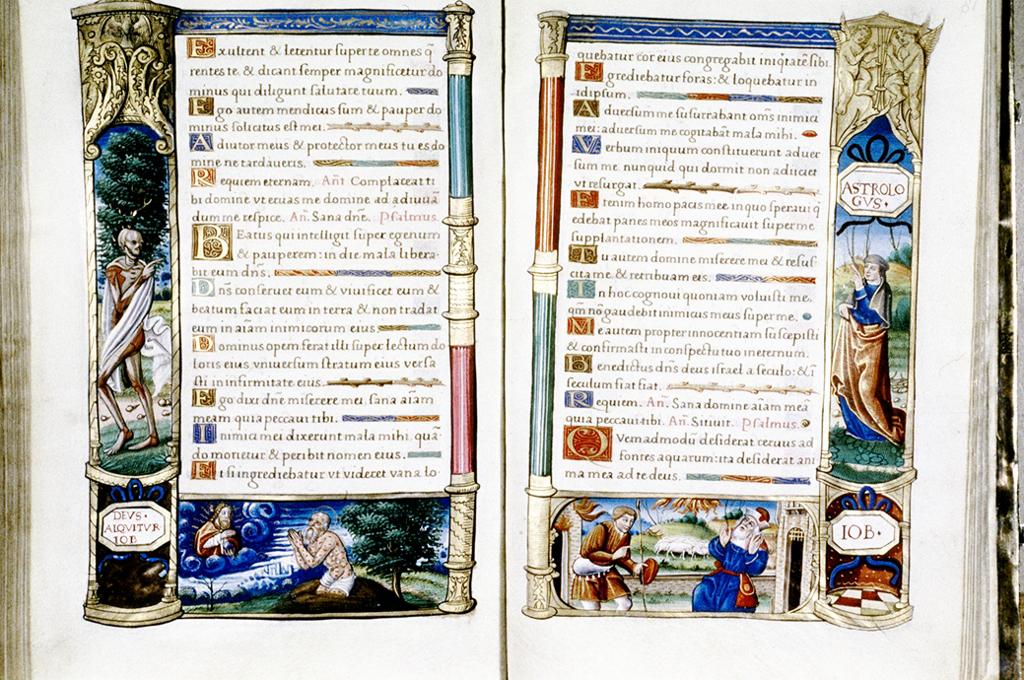 Exultent & letentur super te omnes q̄
rentes te. & dicant semper magnificetur do
minus qui diligunt salutare tuum.
Ego autem mendicus sum & pauper do
minus solicitus est mei.
Adiutor meus & protector meus tu es do
mine ne tardaueris.
Requiem eternam. Añt Complaceat ti
bi domine vt eruas me domine ad adiuuā
dum me respice. An. Sana dñe. Psalmus.
Beatus qui intelligit super egenum
& pauperem: in die mala libera-
bit eum dñs.
Dñs conseruet eum & viuificet eum &
beatum faciat eum in terra & non tradat
eum in aīam inimicorum eius
Dominus opem ferat illi super lectum do
loris eius vniuersum stratum eius versa
sti in infirmitate eius
Ego dixi dñe miserere mei. sana aīam
meam quia peccaui tibi.
Inimici mei dixerunt mala mihi. quā-
do morietur & peribit nomen eius.
Et si ingrediebatur vt videret vana lo-
DEVS·
ALQVITVR
IOB
quebatur cor eius congregabit iniq̄tatē sibi
Egrediebatur foras: & loquebatur in
idipsum.
Aduersum me susurrabant om̄s inimici
mei: aduersum me cogitabāt mala mihi.
Verbum iniquum constituerunt aduer
sum me. nunquid qui dormit non adiiciet
vt resurgat.
Etenim homo pacis mee in quo speraui q̄
edebat panes meos magnificauit super me
supplantationem.
Tu autem domine miserere mei & resus
cita me & retribuam eis.
In hoc cognoui quoniam voluisti me.
qm̄ nō gaudebit inimicus meus super me.
Me autem propter innocentiam suscepisti
& confirmasti in conspectu tuo ineternum.
Benedictus dñs deus israel a seculo: & ī
seculum fiat fiat.
Requiem. An. Sana domine aīam meā
quia peccaui tibi. An. Sitiuit. Psalmus.
Quemadmodū desiderat ceruus ad
fontes aquarum: ita desiderat ani
ma mea ad te deus.
ASTROLO
GVS·
IOB·